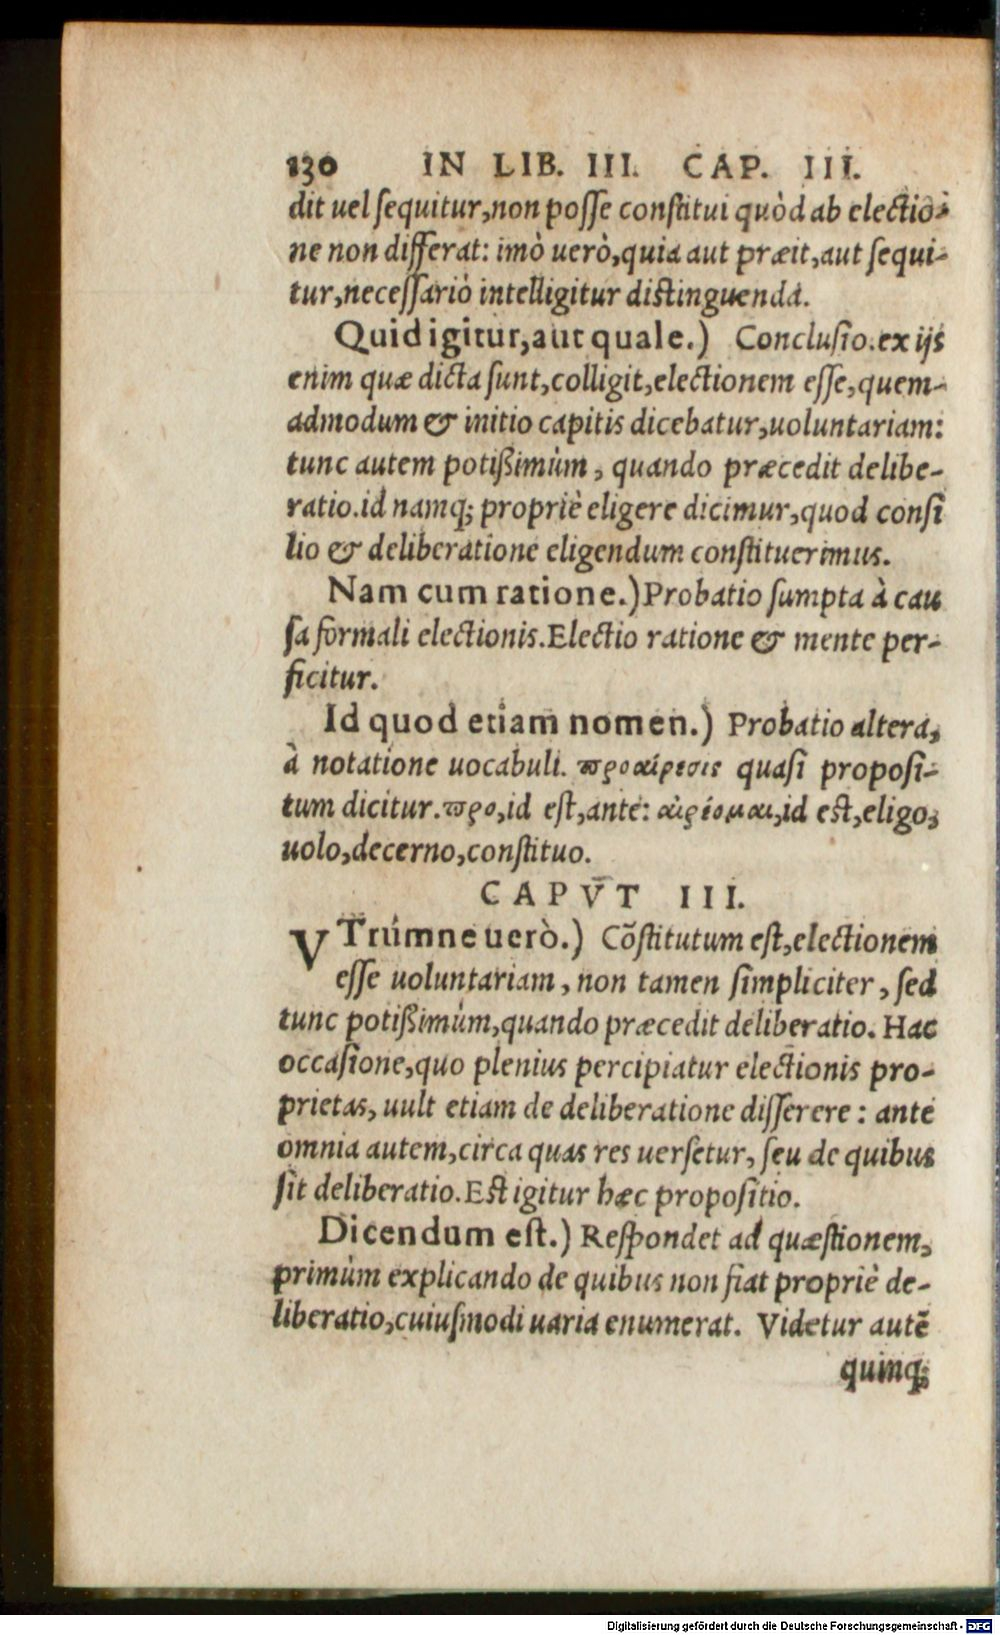 130 IN LIB. III. CAP. III.
dit uel ſequitur,non poſſe conſtitui quòd ab electio-
ne non differat: imò uerò,quia aut præit,aut ſequi-
tur,neceſſariò intelligitur diſtinguenda.
Quid igitur,aut quale.) Concluſio.ex ijs
enim quæ dicta ſunt,colligit,electionem eſſe,quem-
admodum & initio capitis dicebatur,uoluntariam:
tunc autem potißimùm, quando præcedit delibe-
ratio.id namq; propriè eligere dicimur,quod conſi
lio & deliberatione eligendum conſtituerimus.
Nam cum ratione.)Probatio ſumpta à cau
ſa formali electionis.Electio ratione & mente per-
ficitur.
Id quod etiam nomen.) Probatio altera,
à notatione uocabuli. προαίρεσις quaſi propoſi-
tum dicitur.προ,id eſt,ante: αἱρέομαι,id eſt,eligo,
uolo,decerno,conſtituo.
CAPVT III.
VTrúmne uerò.) Cõſtitutum eſt,electionem
eſſe uoluntariam, non tamen ſimpliciter, ſed
tunc potißimùm,quando præcedit deliberatio. Hac
occaſione,quo plenius percipiatur electionis pro-
prietas, uult etiam de deliberatione diſſerere: ante
omnia autem,circa quas res uerſetur, ſeu de quibus
ſit deliberatio.Eſt igitur hæc propoſitio.
Dicendum eſt.) Reſpondet ad quæſtionem,
primùm explicando de quibus non fiat propriè de-
liberatio,cuiuſmodi uaria enumerat. Videtur autẽ
quinq;
Digitalisierung gefördert durch die Deutsche Forschungsgemeinschaft - DFG